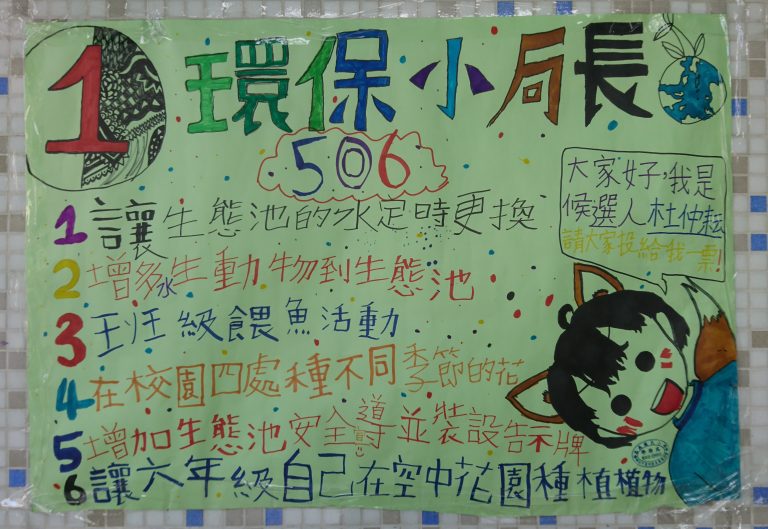 1 環保小局長
506
大家好,我是
候選人杜仲耘
請大家投給我一票!
1 讓生態池的水定時更換
2 增多水生動物到生態池
3 班班級餵魚活動
4 在校園四處種不同季節的花
5 增加生態池安全導並裝設告示牌
6 讓六年級自己在空中花園種植植物